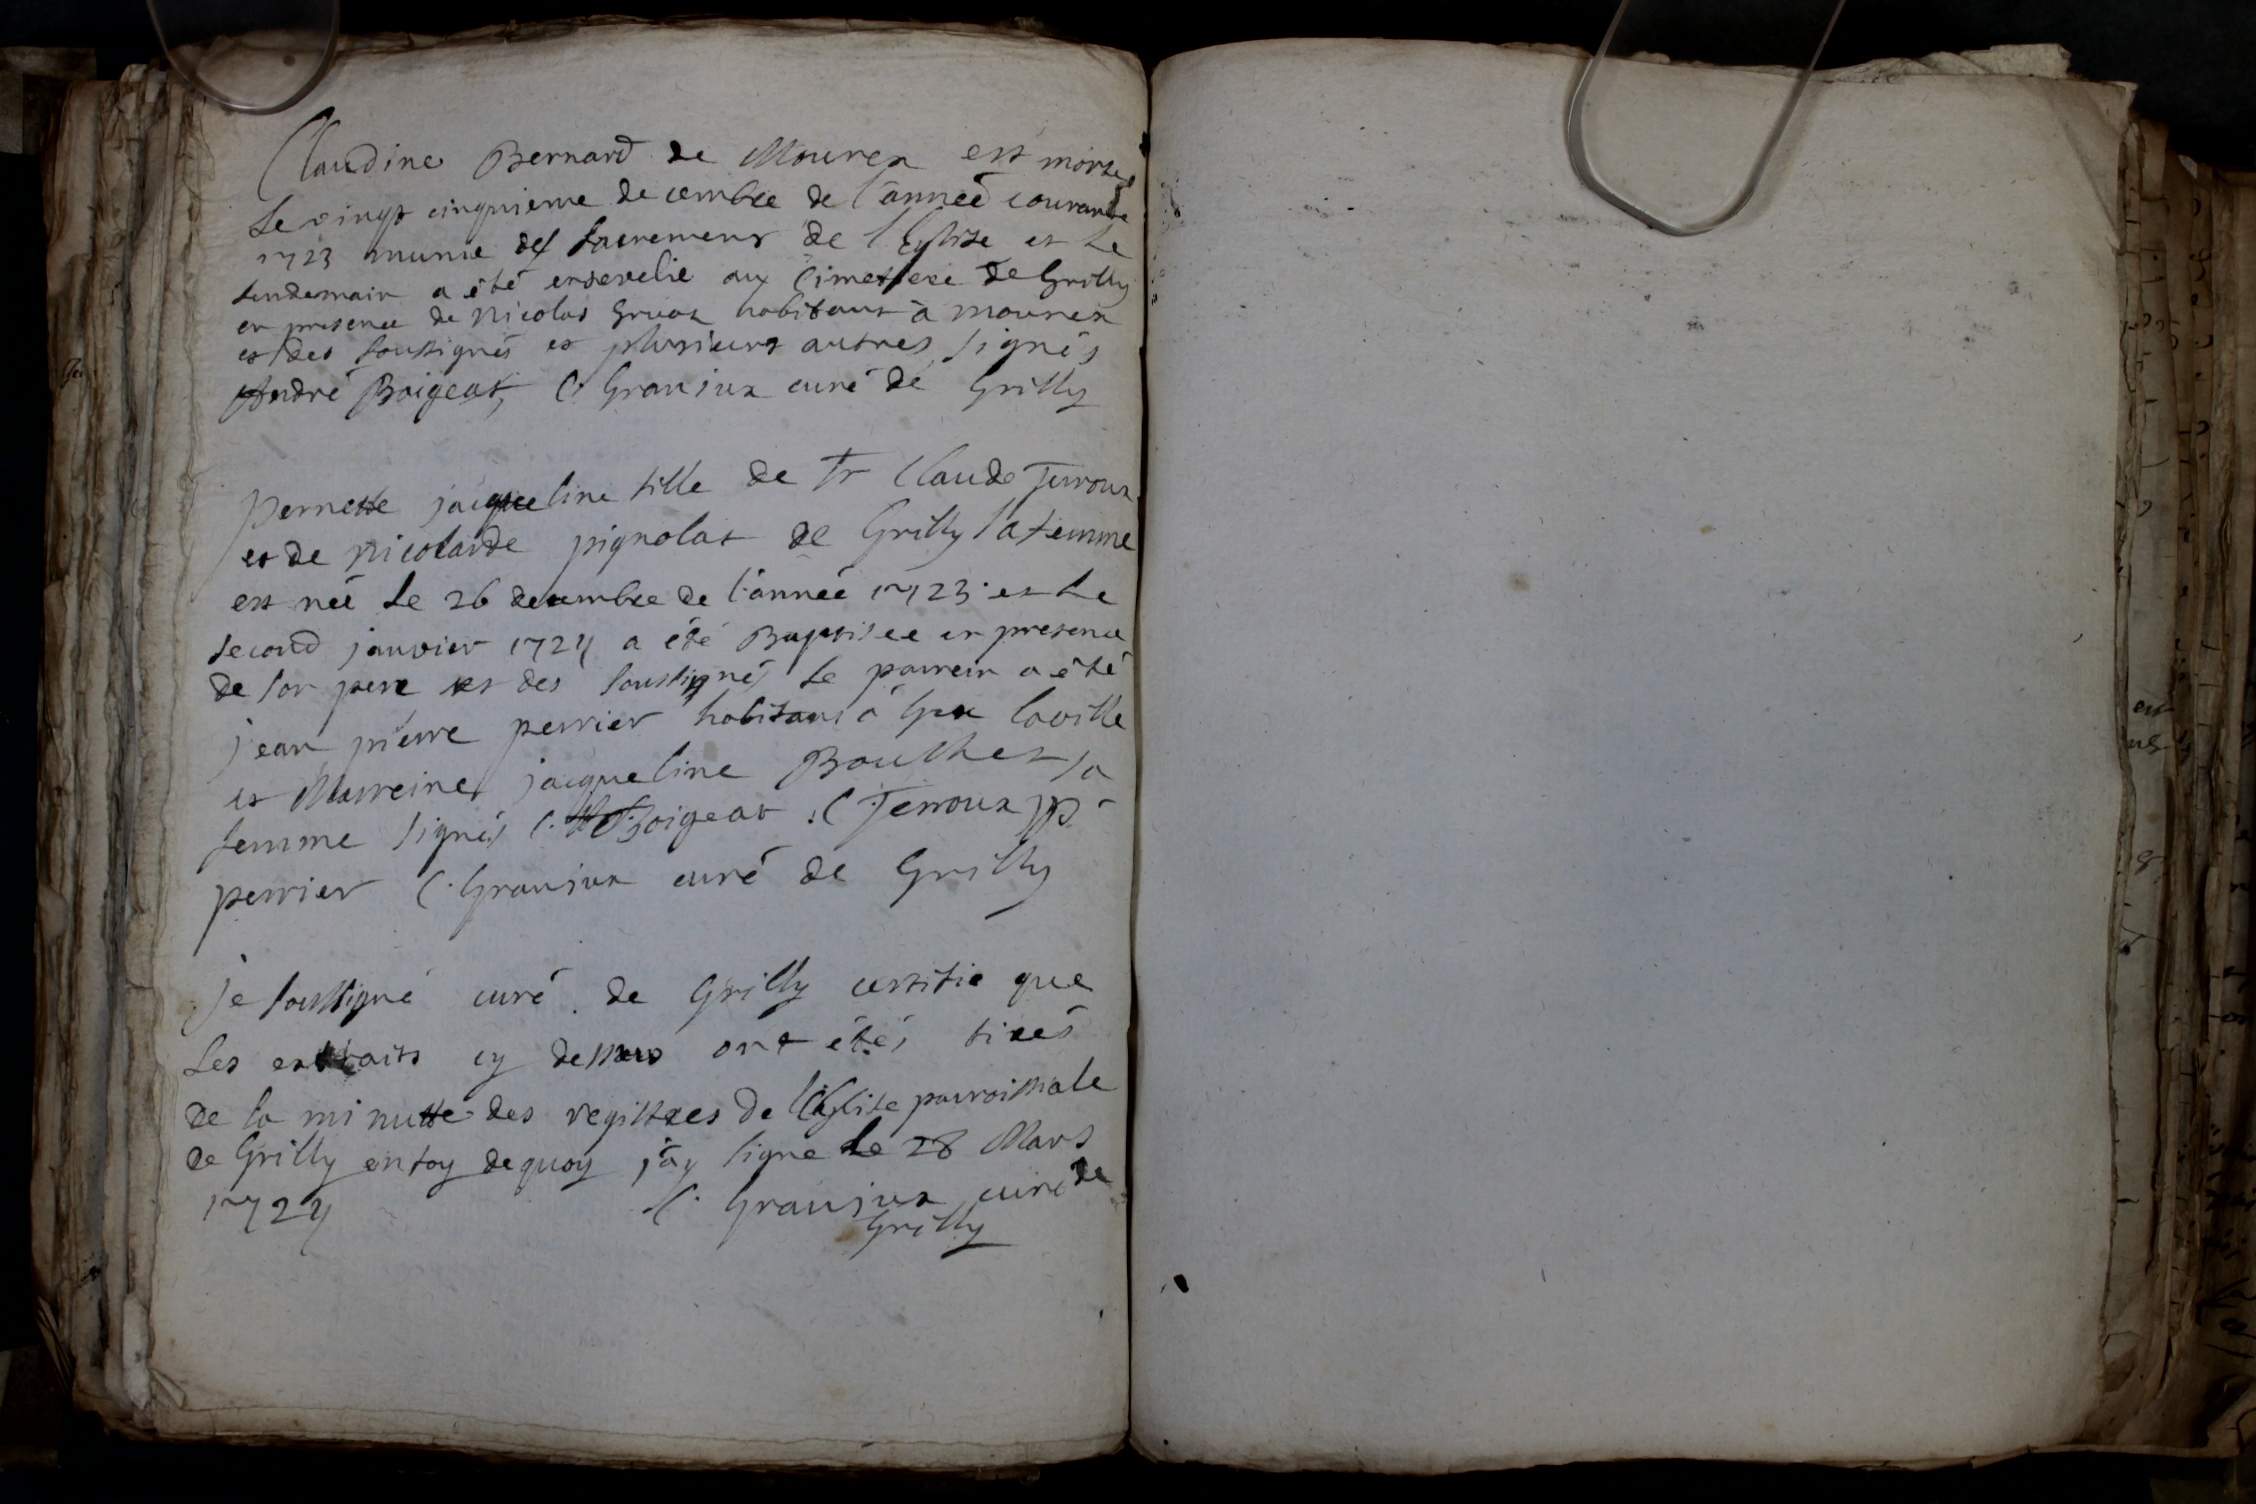 Claudine Bernard de Mourex est morte
Le vingt cinquieme decembre de l'année courante
1723 munie des sacremens de l'Eglise et Le
lendemain a été ensevelie au Cimettere de Grilly
en presence de Nicolas Gruaz habitant à mourex
et des soussignés et plusieurs autres signés
André Boigeat, C. Graniux curé de Grilly
Pernette jacqueline fille de Fr Claude Terroux
et de Nicolarde pignolat de Grilly sa femme
est neé Le 26 decembre de l'année 1723 et Le
second janvier 1724 a été Baptisee en presence
de son pere et des soussignés Le parrein a été
jean pierre perrier habitant à Gex laville
et Marreine jacqueline Bouthet sa
femme signés C. Boigeat. C Terroux JP
perrier C. Graniux curé de Grilly
Je soussigné curé de Grilly certifie que
Les extraits cy dessus ont étés tirés
de la minutte des registres de l'Eglise parroissiale
de Grilly en foy dequoy j'ay signé Le 28 Mars
1724 C. Graniux curé de
Grilly